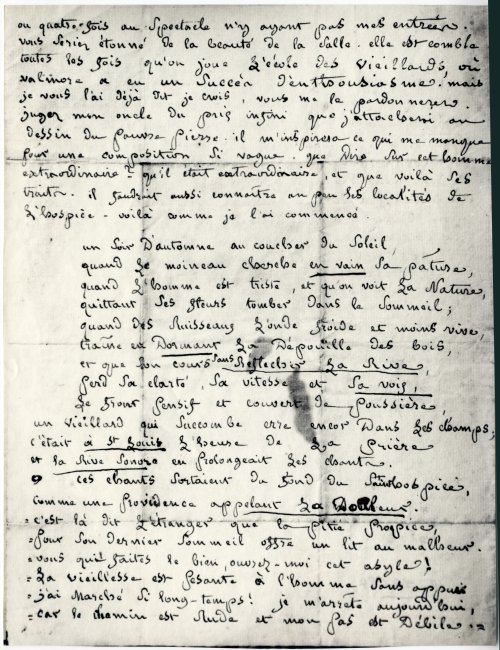 ou quatre fois au Spectacle n'y ayant pas mes entrées.
vous seriez étonné de la beauté de la Salle. elle est comble
toutes les fois qu'on joue L'école des Vieillards, où
valmore a eu un Succès d'enthousiasme. mais
je vous l'ai déjà dit je crois, vous me le pardonnerez.
jugez mon oncle du prix infini que j'attacherai au
dessin du pauvre Pierre. il m'inspirera ce qui me manque
pour une composition si vague. que dire sur cet homme
extraordinaire ? qu'il était extraordinaire, et que voilà ses
traits. il faudrait aussi connaître un peu les localités de
L'hospice. voilà comme je l'ai commencé.
un Soir D'automne au coucher du Soleil,
quand Le moineau cherche en vain Sa pâture,
quand L'homme est triste, et qu'on voit La Nature,
quittant Ses fleurs tomber dans le Sommeil ;
quand des Ruisseaux L'onde froide et moins vive,
traîne en Dormant La Dépouille des bois,
et que son cours Sans Réfléchir La Rive,
perd Sa clarté, Sa vitesse et Sa voix,
Le front pensif et couvert de poussière,
un vieillard qui Succombe erre encor Dans Les champs ;
c'était à St Louis L'heure de La prière
et la Rive Sonore en prolongeait Les chants.
ces chants Sortaient du fond du Saint hospice,
comme une providence appelant La Douleur.
- c'est là dit L'étranger que la pitié propice,
- pour Son dernier Sommeil offre un lit au malheur.
- vous qui faites le bien, ouvrez-moi cet asyle !
- La vieillesse est pesante à l'homme Sans appui
- j'ai Marché Si long-temps ! je m'arrête aujourd'hui,
- car le chemin est Rude et mon pas est Débile. -